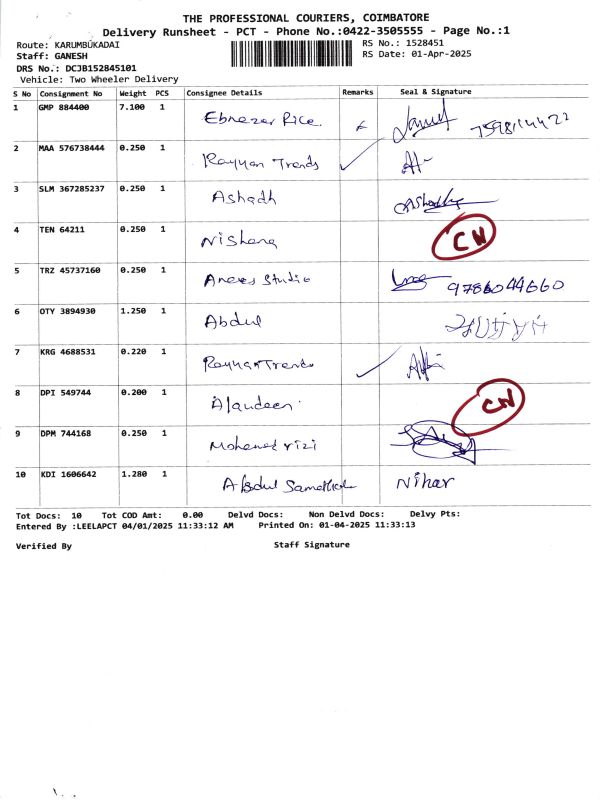 THE PROFESSIONAL COURIERS, COIMBATORE
Delivery Runsheet - PCT - Phone No.:0422-3505555 - Page No.:1
Route: KARUMBUKADAI RS No.: 1528451
Staff: GANESH RS Date: 01-Apr-2025
DRS No.: DCJB152845101
Vehicle: Two Wheeler Delivery
S No Consignment No Weight PCS Consignee Details Remarks Seal & Signature
1 GMP 884400 7.100 1 Ebnezer Rice
2 MAA 576738444 0.250 1 Rayyan Trends
3 SLM 367285237 0.250 1 Ashadh
4 TEN 64211 0.250 1 Nishana CN
5 TRZ 45737160 0.250 1 Studio 9786044660
6 OTY 3894930 1.250 1 Abdul
7 KRG 4688531 0.220 1 Rayyan Trends
8 DPI 549744 0.200 1 Alaudeen CN
9 DPM 744168 0.250 1 Mohamed rizi
10 KDI 1606642 1.280 1 Abdul Nihar
Tot Docs: 10 Tot COD Amt: 0.00 Delvd Docs: Non Delvd Docs: Delvy Pts:
Entered By :LEELAPCT 04/01/2025 11:33:12 AM Printed On: 01-04-2025 11:33:13
Verified By Staff Signature